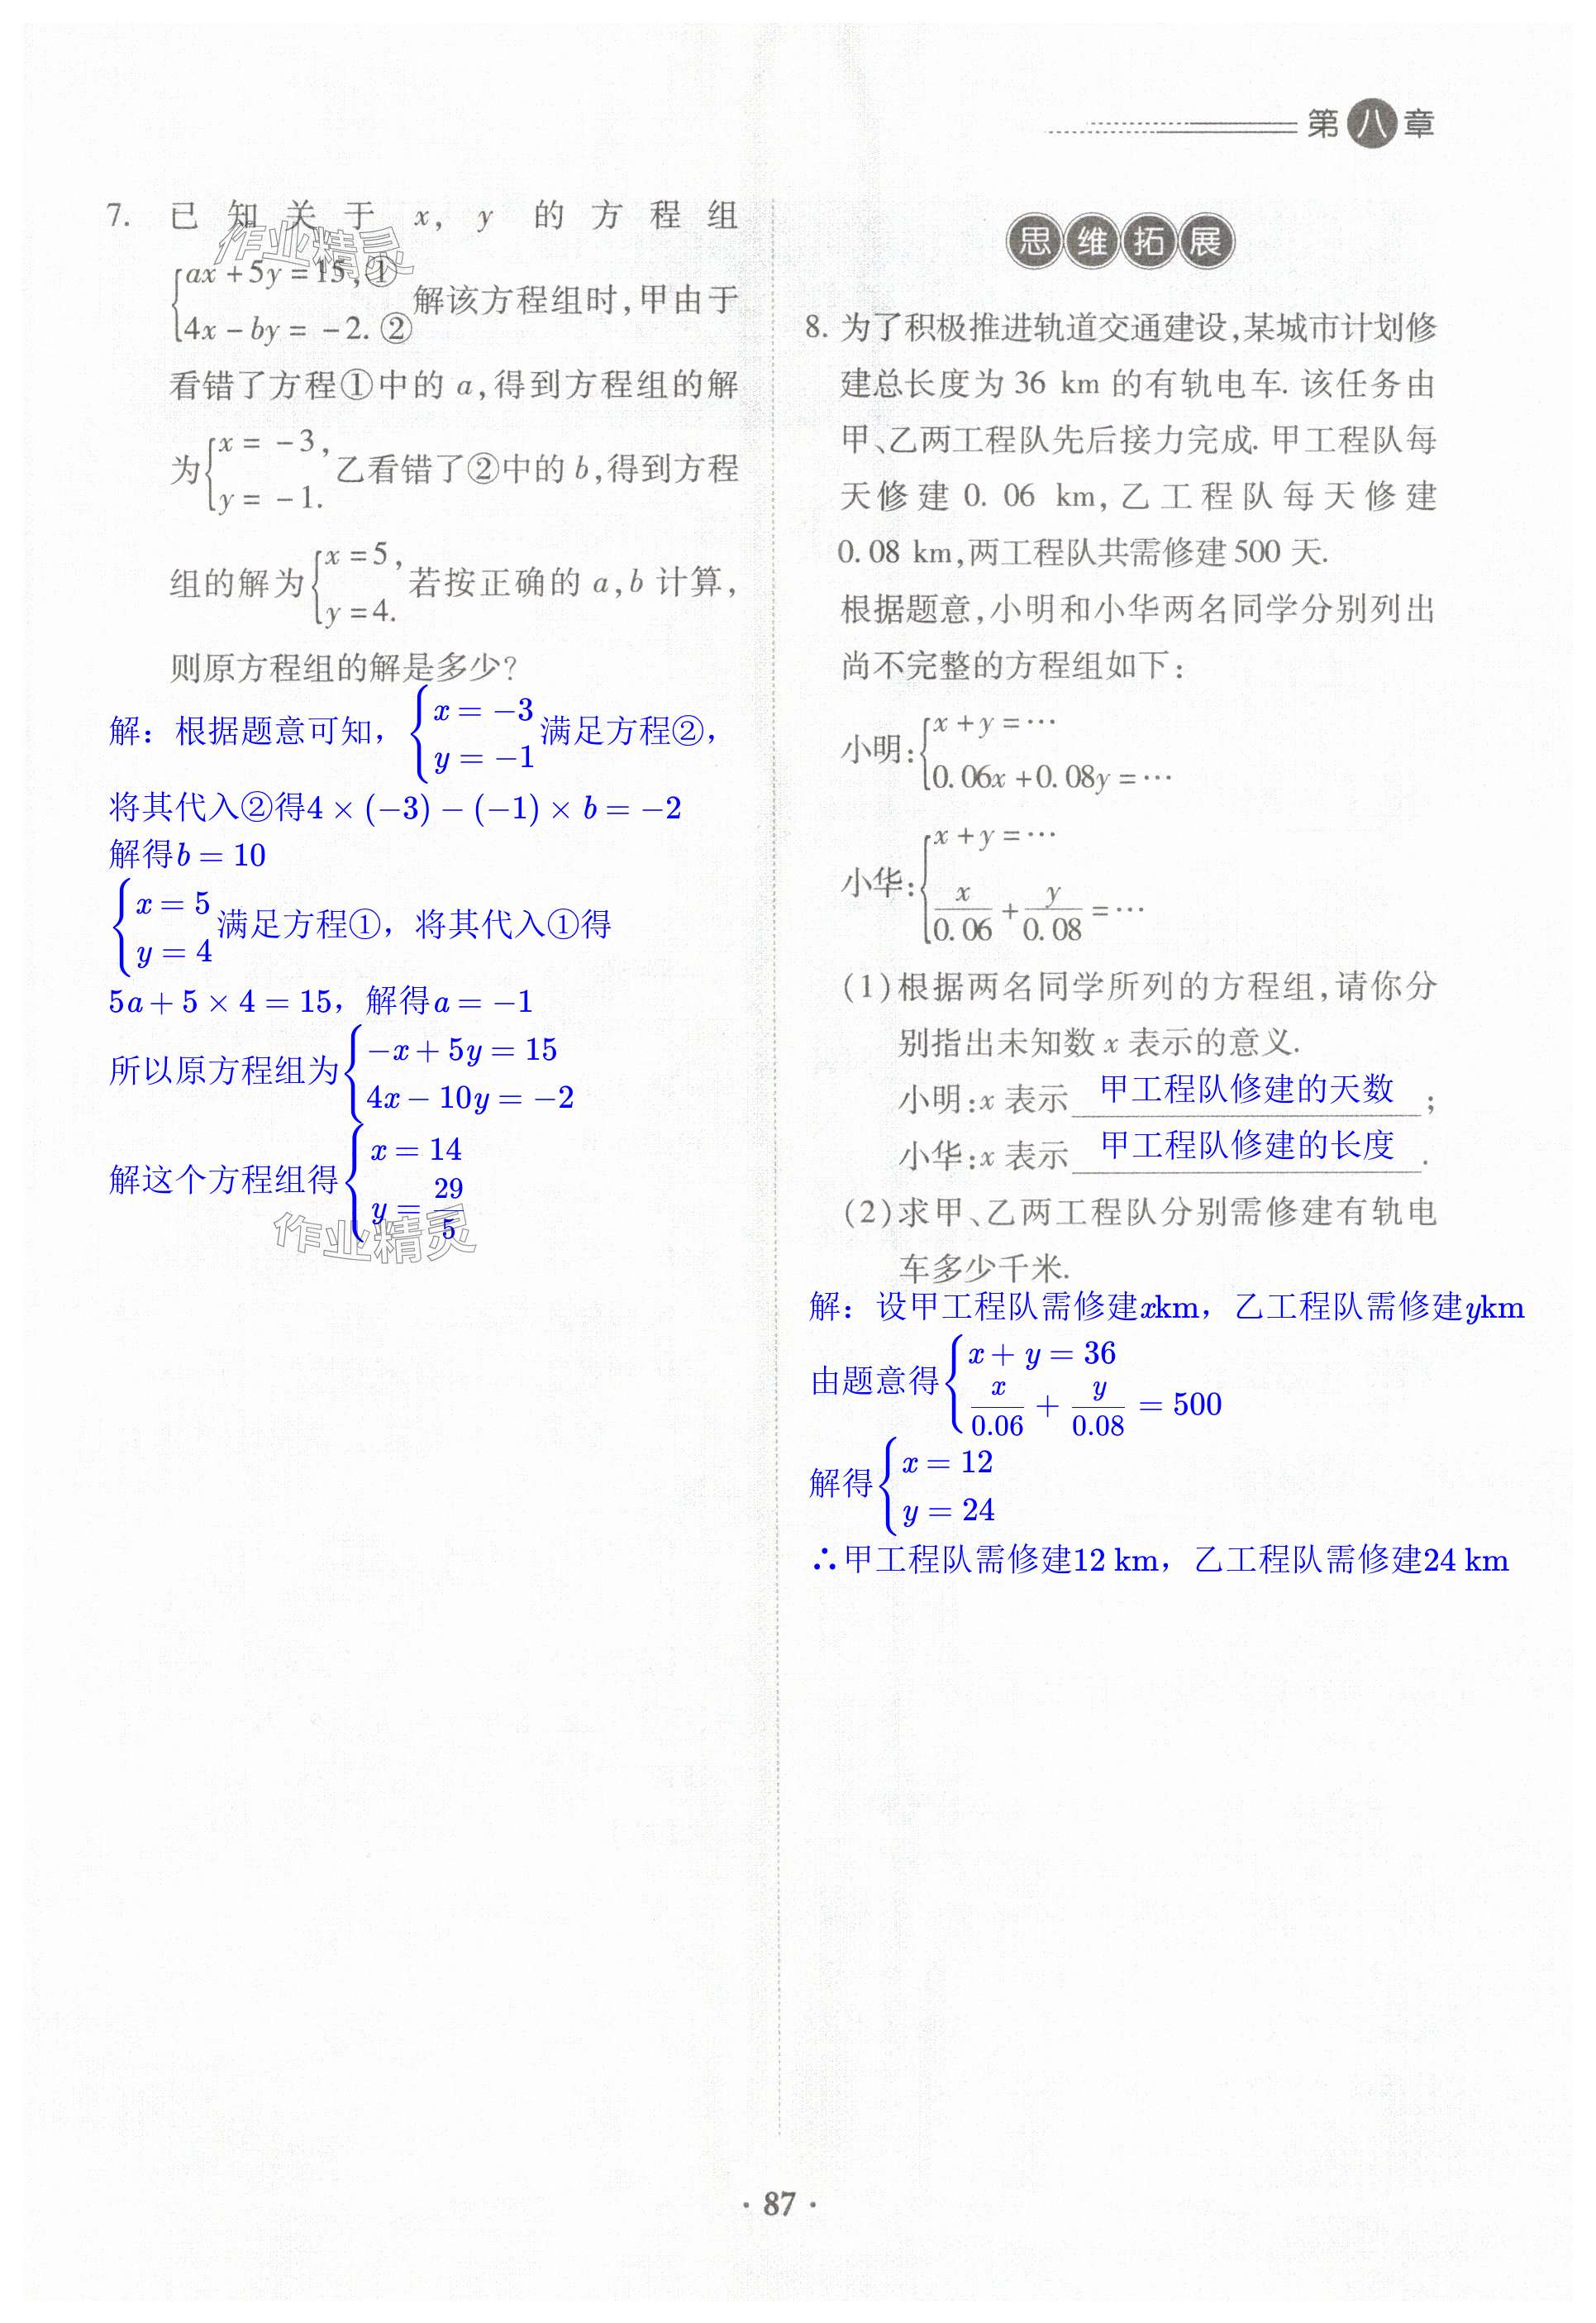 第八章
7. 已知关于 x, y 的方程组
作业精灵
{ax+5y=15,①
4x-by=-2.② 解该方程组时,甲由于
看错了方程①中的 a,得到方程组的解
为{x=-3,
y=-1. 乙看错了②中的 b,得到方程
组的解为{x=5,
y=4. 若按正确的 a,b 计算,
则原方程组的解是多少?
解：根据题意可知，{x=-3
y=-1 满足方程②，
将其代入②得4×(-3)-(-1)×b=-2
解得b=10
{x=5
y=4 满足方程①，将其代入①得
5a+5×4=15，解得a=-1
所以原方程组为{-x+5y=15
4x-10y=-2
解这个方程组得{x=14
y=29/5
作业精灵
思维拓展
8. 为了积极推进轨道交通建设,某城市计划修
建总长度为 36 km 的有轨电车. 该任务由
甲、乙两工程队先后接力完成. 甲工程队每
天修建 0.06 km,乙工程队每天修建
0.08 km,两工程队共需修建 500 天.
根据题意,小明和小华两名同学分别列出
尚不完整的方程组如下:
小明:{x+y=…
0.06x+0.08y=…
小华:{x+y=…
x/0.06+y/0.08=…
(1)根据两名同学所列的方程组,请你分
别指出未知数 x 表示的意义.
小明:x 表示 甲工程队修建的天数 ;
小华:x 表示 甲工程队修建的长度 .
(2)求甲、乙两工程队分别需修建有轨电
车多少千米.
解：设甲工程队需修建xkm，乙工程队需修建ykm
由题意得{x+y=36
x/0.06+y/0.08=500
解得{x=12
y=24
∴甲工程队需修建12 km，乙工程队需修建24 km
· 87 ·